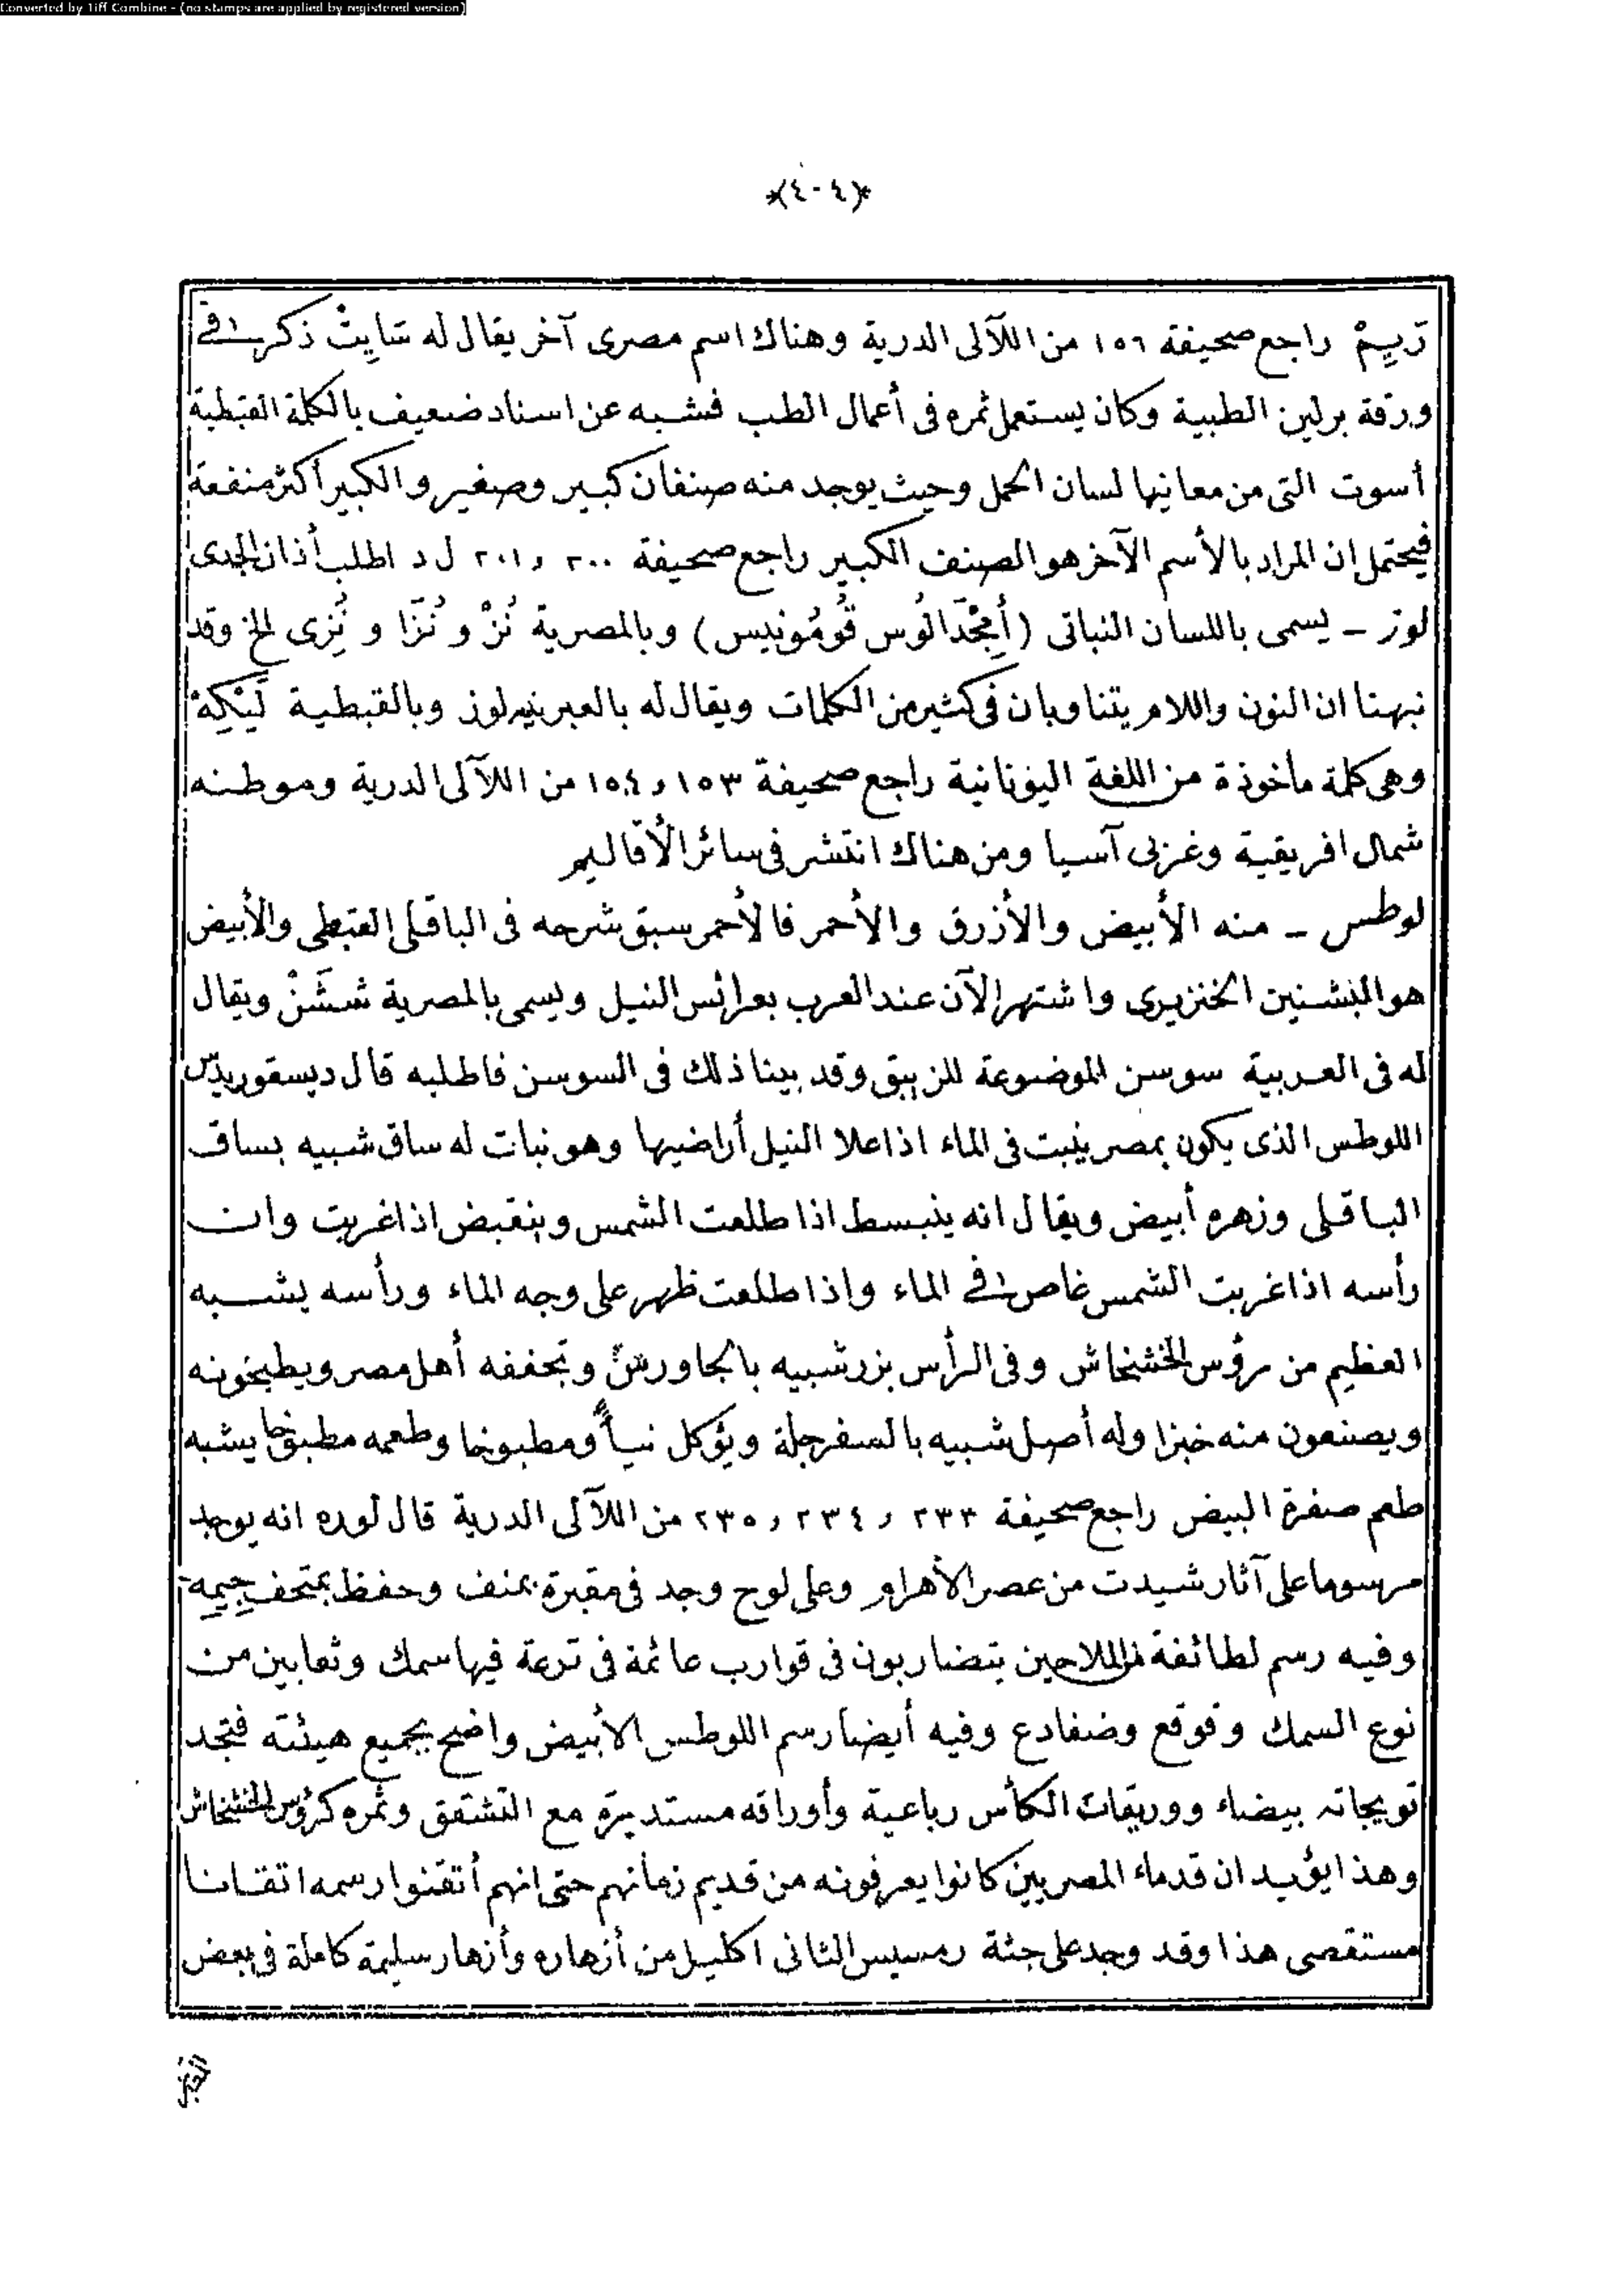 Converted by Tiff Combine - (no stamps are applied by registered version)
*(٤٠٤)*
رَبِيمْ راجع صحيفة ١٥٦ من اللآلى الدرية وهناك اسم مصرى آخر يقال له شَايِتْ ذكر فى
ورقة برلين الطبية وكان يستعمل ثمره فى أعمال الطب فشبه عن اسناد ضعيف بالكلمة القبطية
أسوت التى من معانيها لسان الحمل وحيث يوجد منه صنفان كبير وصغير والكبير أكثر منفعة
فيحتمل ان المراد بالأسم الآخر هو الصنف الكبير راجع صحيفة ٢٠٠ و ٢٠١ ل د اطلب أذان الجدى
لوز - يسمى باللسان النباتى (أَمِجْدَالُوس قُومُونِيس) وبالمصرية نُزْ و نُزَا و نُزِى الخ وقد
نبهنا ان النون واللام يتناوبان فى كثير من الكلمات ويقال له بالعبرنيه لوز وبالقبطية لَيْكِهْ
وهى كلمة مأخوذة من اللغة اليونانية راجع صحيفة ١٥٣ و ١٥٤ من اللآلى الدرية وموطنه
شمال افريقية وغربى آسيا ومن هناك انتشر فى سائر الأقاليم
لوطس - منه الأبيض والأزرق والأحمر فالأحمر سبق شرحه فى الباقلى القبطى والأبيض
هو البشنين الخنزيرى واشتهر الآن عند العرب بعرائس النيل ويسمى بالمصرية شَشَنْ ويقال
له فى العربية سوسن الموضوعة للزنبق وقد بينا ذلك فى السوسن فاطلبه قال ديسقوريدس
اللوطس الذى يكون بمصر ينبت فى الماء اذا علا النيل أراضيها وهو نبات له ساق شبيه بساق
الباقلى وزهره أبيض ويقال انه ينبسط اذا طلعت الشمس وينقبض اذا غربت وان
رأسه اذا غربت الشمس غاص فى الماء واذا طلعت ظهر على وجه الماء ورأسه يشبه
العظيم من رؤس الخشخاش وفى الرأس بزر شبيه بالجاورش وتجففه أهل مصر ويطبخونه
ويصنعون منه خبزا وله أصل شبيه بالسفرجلة ويؤكل نيأ ومطبوخا وطعمه مطبوخا يشبه
طعم صفرة البيض راجع صحيفة ٢٣٣ و ٢٣٤ و ٢٣٥ من اللآلى الدرية قال لوره انه يوجد
مرسوما على آثار شيدت من عصر الأهرام وعلى لوح وجد فى مقبرة بمنف وحفظ بمتحف جيمه
وفيه رسم لطائفة من الملاحين يتضاربون فى قوارب عائمة فى ترعة فيها سمك وثعابين من
نوع السمك وقوقع وضفادع وفيه أيضا رسم اللوطس الأبيض واضح بجميع هيئته فتجد
تويجاته بيضاء ووريقات الكأس رباعية وأوراقه مستديرة مع التشقق وثمره كرؤس الخشخاش
وهذا يؤيد ان قدماء المصريين كانوا يعرفونه من قديم زمانهم حتى انهم أتقنوا رسمه اتقانا
مستقصى هذا وقد وجد على جثة رمسيس الثانى اكليل من أزهاره وأزهار سليمة كاملة فى بعض